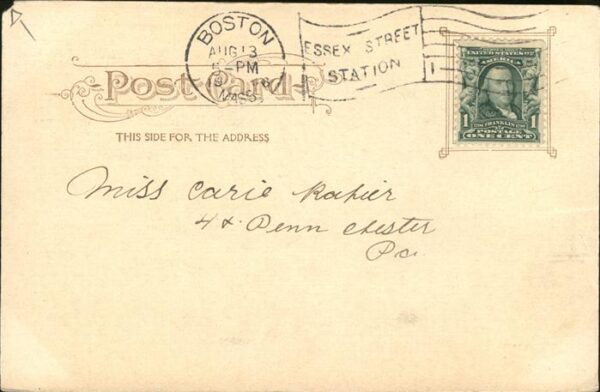 BOSTON
AUG 13
5 - PM
MASS.
ESSEX STREET
STATION
Post Card
THIS SIDE FOR THE ADDRESS
UNITED STATES OF
AMERICA
1 FRANKLIN 1
POSTAGE
ONE CENT
Miss Carie Rapier
4 & Penn Chester
Pa.